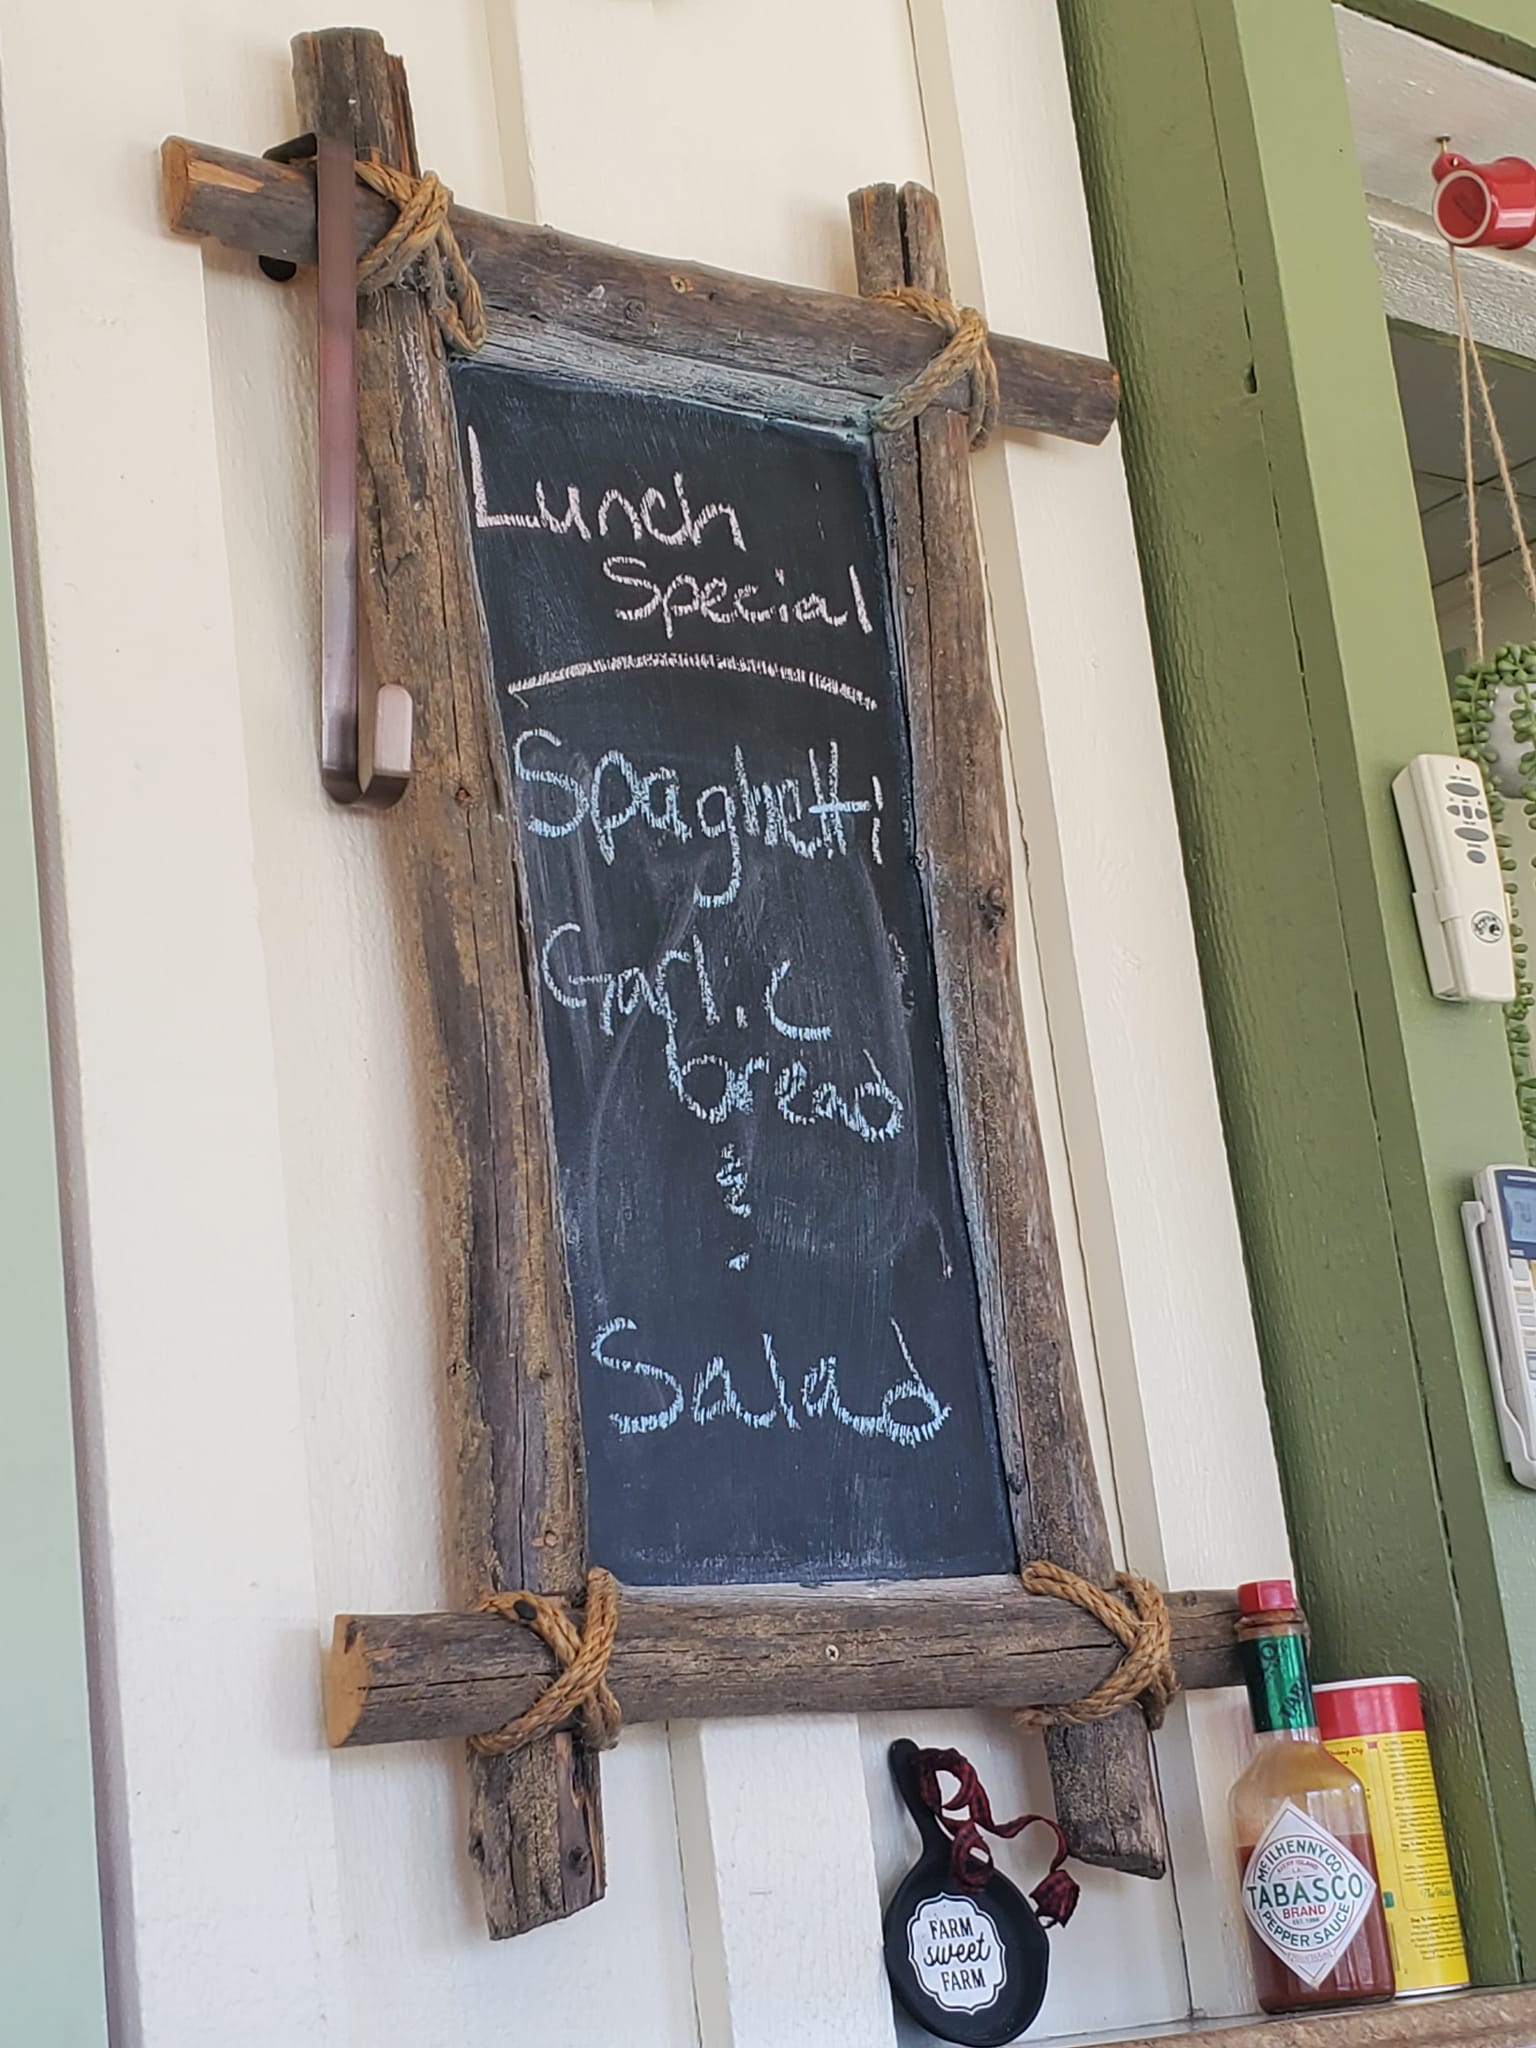 Lunch
Special
Spaghetti
Garlic
bread
&
Salad
FARM
sweet
FARM
McILHENNY CO.
AVERY ISLAND
LA.
TABASCO
BRAND
EST. 1868
PEPPER SAUCE